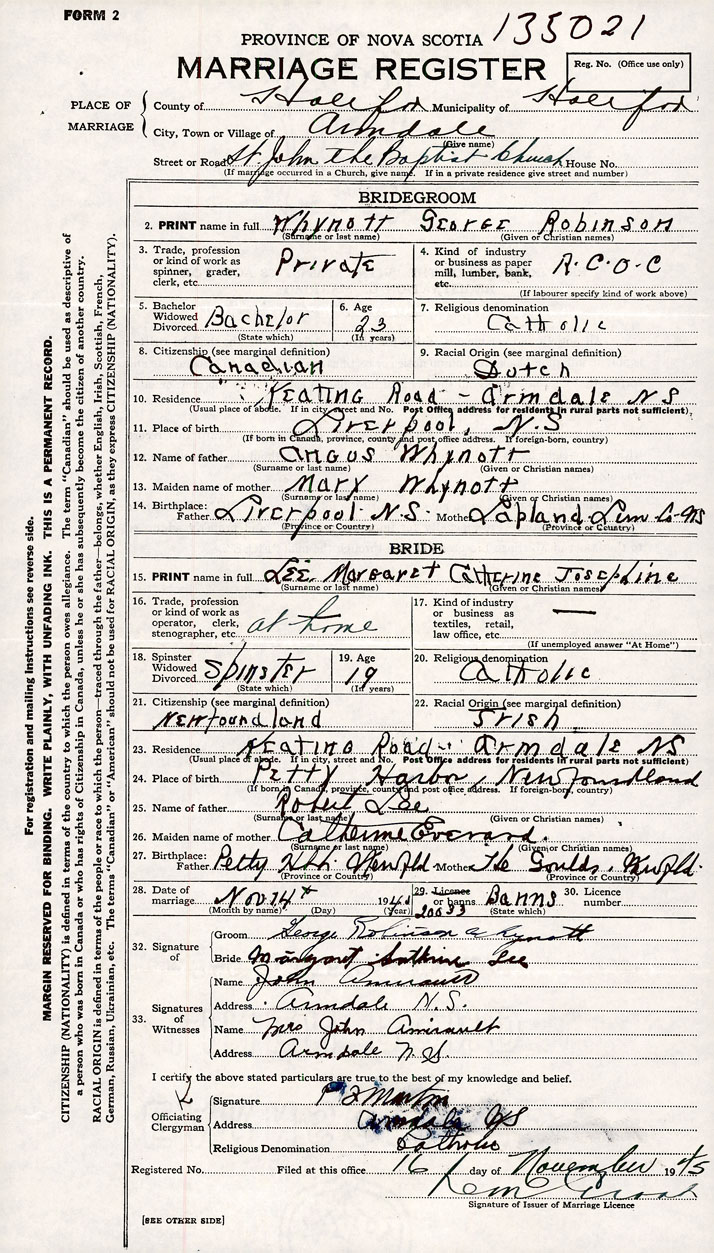 FORM 2
135021
PROVINCE OF NOVA SCOTIA
MARRIAGE REGISTER
Reg. No. (Office use only)
PLACE OF MARRIAGE
County of Halifax Municipality of Halifax
City, Town or Village of Armdale
(Give name)
Street or Road St. John the Baptist Church House No.
(If marriage occurred in a Church, give name. If in a private residence give street and number)
BRIDEGROOM
2. PRINT name in full Whynott George Robinson
(Surname or last name) (Given or Christian names)
3. Trade, profession or kind of work as spinner, grader, clerk, etc. Private
4. Kind of industry or business as paper mill, lumber, bank, etc. R.C.O.C
(If labourer specify kind of work above)
5. Bachelor Widowed Divorced Bachelor
(State which)
6. Age 23
(In years)
7. Religious denomination Catholic
8. Citizenship (see marginal definition) Canadian
9. Racial Origin (see marginal definition) Dutch
10. Residence Keating Road - Armdale N S
(Usual place of abode. If in city, street and No. Post Office address for residents in rural parts not sufficient).
11. Place of birth Liverpool, N.S
(If born in Canada, province, county and post office address. If foreign-born, country)
12. Name of father Angus Whynott
(Surname or last name) (Given or Christian names)
13. Maiden name of mother Mary Whynott
(Surname or last name) (Given or Christian names)
14. Birthplace: Father Liverpool N.S. Mother Lapland Lun Co NS
(Province or Country) (Province or Country)
BRIDE
15. PRINT name in full Lee Margaret Catherine Josephine
(Surname or last name) (Given or Christian names)
16. Trade, profession or kind of work as operator, clerk, stenographer, etc. at home
17. Kind of industry or business as textiles, retail, law office, etc. —
(If unemployed answer "At Home")
18. Spinster Widowed Divorced Spinster
(State which)
19. Age 19
(In years)
20. Religious denomination Catholic
21. Citizenship (see marginal definition) Newfoundland
22. Racial Origin (see marginal definition) Irish
23. Residence Keating Road - Armdale NS
(Usual place of abode. If in city, street and No. Post Office address for residents in rural parts not sufficient).
24. Place of birth Petty Harbor, Newfoundland
(If born in Canada, province, county and post office address. If foreign-born, country)
25. Name of father Robert Lee
(Surname or last name) (Given or Christian names)
26. Maiden name of mother Catherine Everard.
(Surname or last name) (Given or Christian names)
27. Birthplace: Father Petty Hbr. Newfld. Mother The Goulds, Newfld.
(Province or Country) (Province or Country)
28. Date of marriage Nov 14th 194
(Month by name) (Day) (Year)
29. Licence or banns Banns
20633 (State which)
30. Licence number
32. Signature of
Groom George Robinson Whynott
Bride Margaret Lee
33. Signatures of Witnesses
Name John Amirault
Address Armdale N.S.
Name Mrs John Amirault
Address Armdale N.S.
I certify the above stated particulars are true to the best of my knowledge and belief.
Officiating Clergyman
Signature
Address Armdale NS
Religious Denomination Catholic
Registered No. Filed at this office 16 day of November 1945
Signature of Issuer of Marriage Licence
[SEE OTHER SIDE]
For registration and mailing instructions see reverse side.
MARGIN RESERVED FOR BINDING. WRITE PLAINLY, WITH UNFADING INK. THIS IS A PERMANENT RECORD.
CITIZENSHIP (NATIONALITY) is defined in terms of the country to which the person owes allegiance. The term "Canadian" should be used as descriptive of
a person who was born in Canada or who has rights of Citizenship in Canada, unless he or she has subsequently become the citizen of another country.
RACIAL ORIGIN is defined in terms of the people or race to which the person—traced through the father—belongs, whether English, Irish, Scottish, French,
German, Russian, Ukrainian, etc. The terms "Canadian" or "American" should not be used for RACIAL ORIGIN, as they express CITIZENSHIP (NATIONALITY).